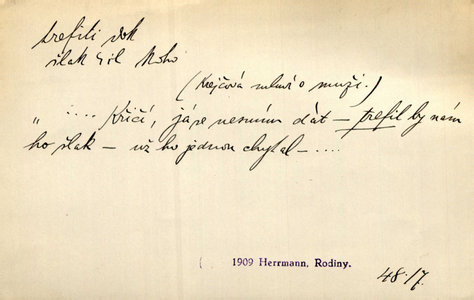 trefiti vok
šlak koho
(Krejčová mluví o muži.)
„ .... Křičí, já se nesmím dát – trefil by nám
ho šlak – už ho jednou chytal – ....
1909 Herrmann, Rodiny.
48/7.